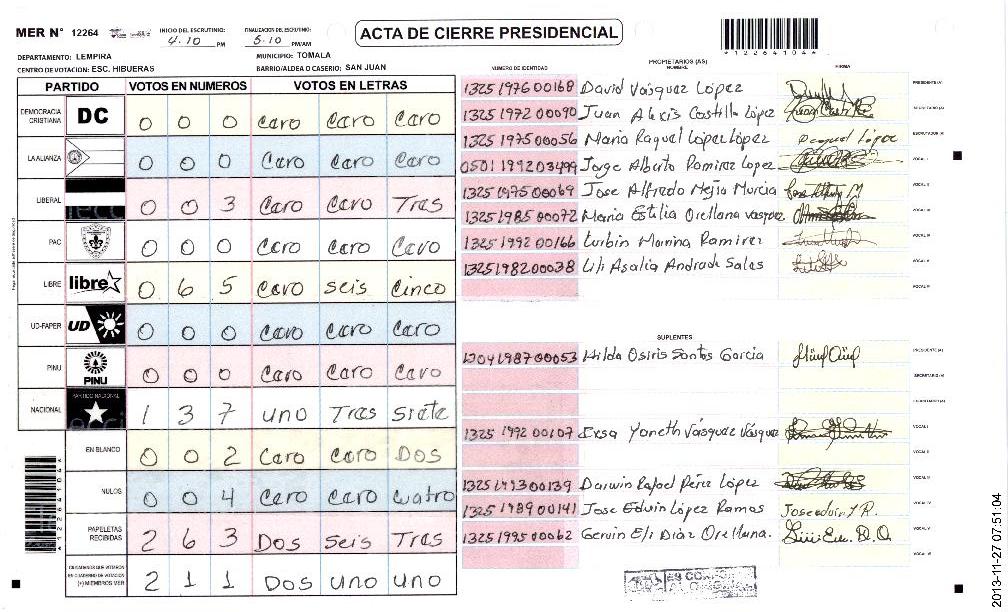 MER N° 12264
INICIO DEL ESCRUTINIO: 4:10 PM
FINALIZACION DEL ESCRUTINIO: 5:10 PM/AM
ACTA DE CIERRE PRESIDENCIAL
*12264104*
DEPARTAMENTO: LEMPIRA
MUNICIPIO: TOMALA
CENTRO DE VOTACION: ESC. HIBUERAS
BARRIO/ALDEA O CASERIO: SAN JUAN
PARTIDO VOTOS EN NUMEROS VOTOS EN LETRAS
DEMOCRACIA CRISTIANA DC 0 0 0 Caro Caro Caro
LA ALIANZA 0 0 0 Caro Caro Caro
LIBERAL 0 0 3 Caro Caro Tras
PAC 0 0 0 Caro Caro Cavo
LIBRE libre 0 6 5 Caro seis cinco
UD-FAPER UD 0 0 0 Caro Caro Caro
PINU PINU 0 0 0 Caro Caro Cavo
NACIONAL PARTIDO NACIONAL 1 3 7 uno Tras siete
EN BLANCO 0 0 2 Caro Caro Dos
NULOS 0 0 4 Caro Caro cuatro
PAPELETAS RECIBIDAS 2 6 3 Dos seis Tras
CIUDADANOS QUE VOTARON EN CUADERNO DE VOTACION (+) MIEMBROS MER 2 1 1 Dos uno uno
PROPIETARIOS (AS)
NUMERO DE IDENTIDAD NOMBRE FIRMA
1325 1976 00168 David Vásquez López PRESIDENTE(A)
1325 1972 00090 Juan Alexis Castillo López SECRETARIO(A)
1325 1975 00056 Maria Raquel López López Raquel López ESCRUTADOR(A)
0501 1992 03499 Jorge Alberto Ramirez Lopez VOCAL I
1325 1975 00069 Jose Alfredo Mejia Murcia VOCAL II
1325 1985 00072 Maria Estilia Orellana Vasquez VOCAL III
1325 1992 00166 Lurbin Marina Ramirez VOCAL IV
1325 1982 00038 Lili Asalia Andrade Salas VOCAL V
VOCAL VI
SUPLENTES
1204 1987 00053 Hilda Osiris Santos Garcia PRESIDENTE(A)
SECRETARIO(A)
ESCRUTADOR(A)
1325 1992 00107 Yaneth Vásquez Vásquez VOCAL I
VOCAL II
1325 1993 00139 Darwin Rafael Pérez López VOCAL III
1325 1989 00141 Jose Edwin López Ramos VOCAL IV
1325 1995 00062 Gervin Eli Diaz Orellana. VOCAL V
VOCAL VI
*12264104*
2013-11-27 07:51:04